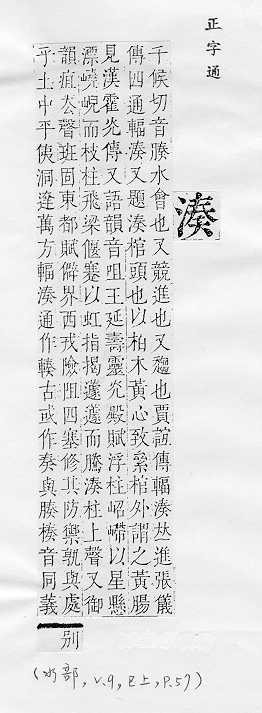 正字通
湊
千候切音腠水會也又競進也又趨也賈誼傳輻湊並進張儀
傳四通輻湊又題湊棺頭也以柏木黃心致纍棺外謂之黃腸
見漢霍光傳又語韻音咀王延壽靈光殿賦浮柱岧嵽以星懸
漂嶢峴而枝柱飛梁偃蹇以虹指揭蘧蘧而騰湊柱上聲又御
韻疽去聲班固東都賦僻界西戎險阻四塞修其防禦孰與處
乎土中平夷洞達萬方輻湊通作輳古或作奏與腠楱音同義
別
(水部, v.9, 巳上, p.57)